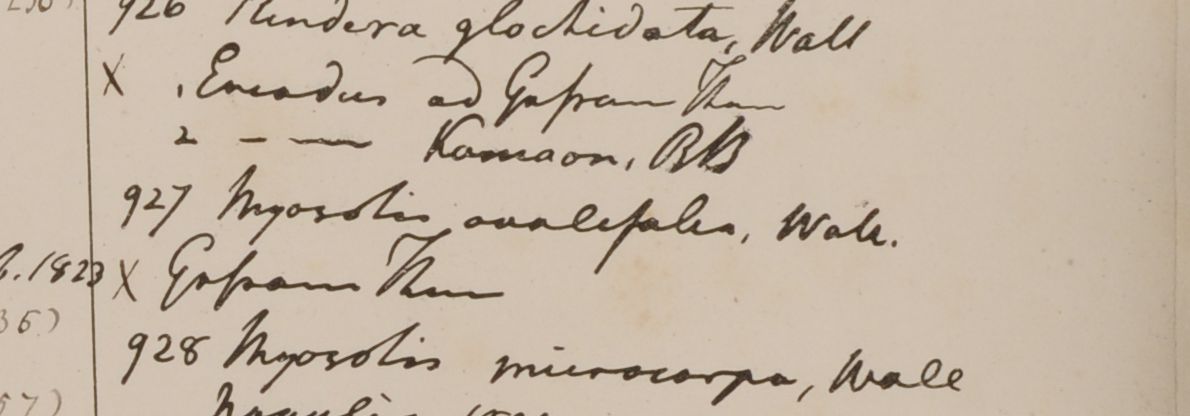 926 Rindera glochidata, Wall
X 1. Emodus ad Gosram Than
2 - — Kamaon, RB
927 Myosotis ovalifolia, Wall.
1823 X Gosram Than
36)
928 Myosotis microcarpa, Wall
57)